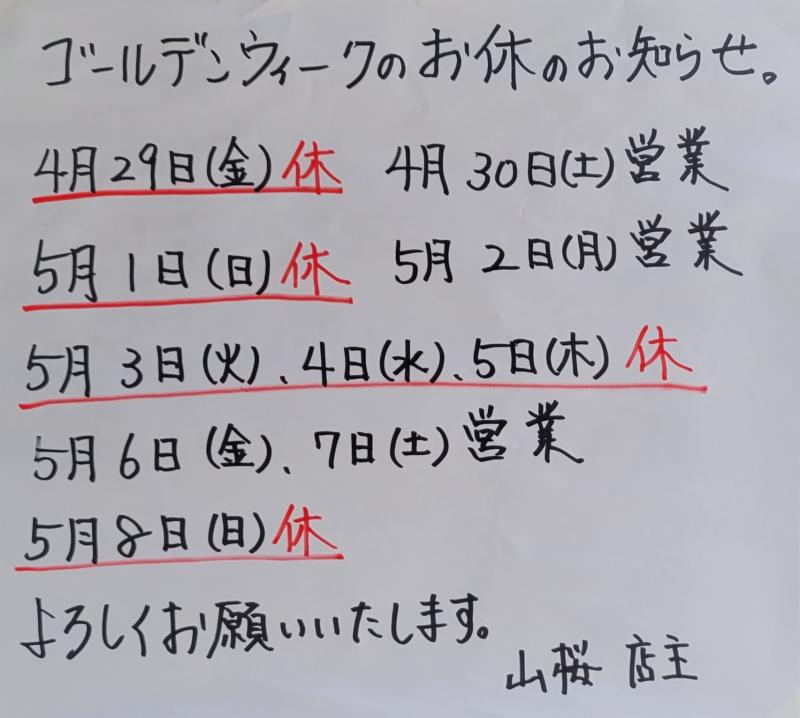 ゴールデンウィークのお休のお知らせ。
4月29日(金)休 4月30日(土)営業
5月1日(日)休 5月2日(月)営業
5月3日(火)、4日(水)、5日(木)休
5月6日(金)、7日(土)営業
5月8日(日)休
よろしくお願いいたします。
山桜 店主